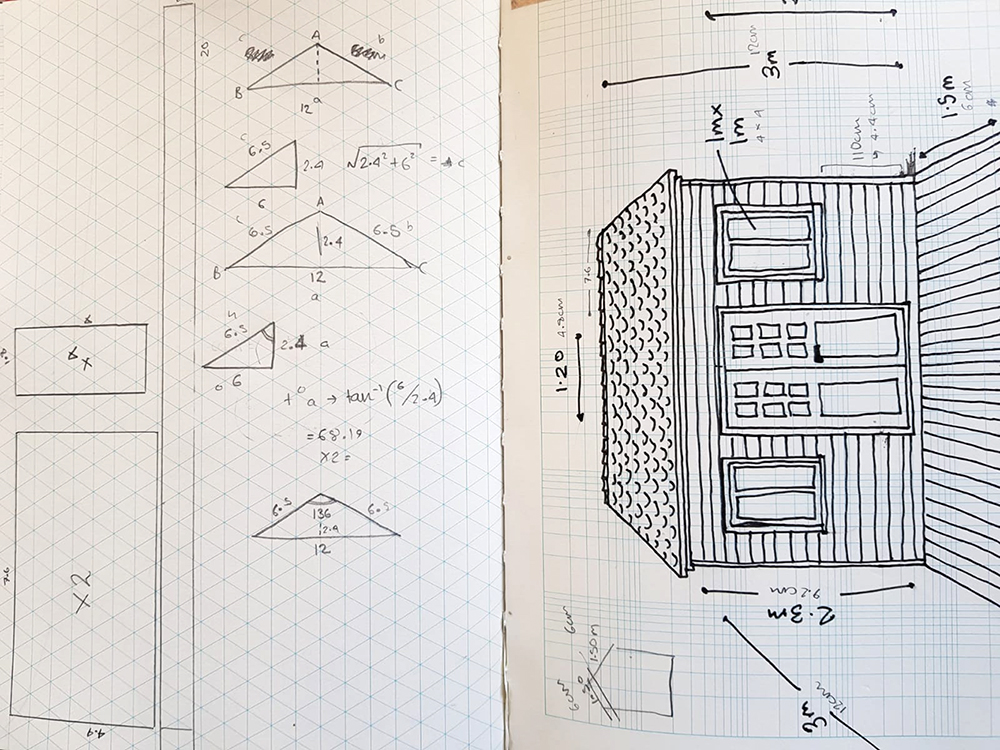 20
A
c
b
B
C
12
a
c
6.5
2.4
6
√2.4² + 6² = c
A
c
6.5
2.4
6.5 b
B
C
12
a
h
6.5
2.4 a
o 6
8
x
t o a → tan⁻¹ (6/2.4)
= 68.19
x2 =
6.5
136
2.4
6.5
12
7.6
x2
4.9
12cm
3m
1mx
1m
4 x 4
110cm
↳ 4.4cm
1.5m
6cm
7.6
4.8cm
1.20
9.2cm
2.3m
6cm
1.50m
12cm
3m